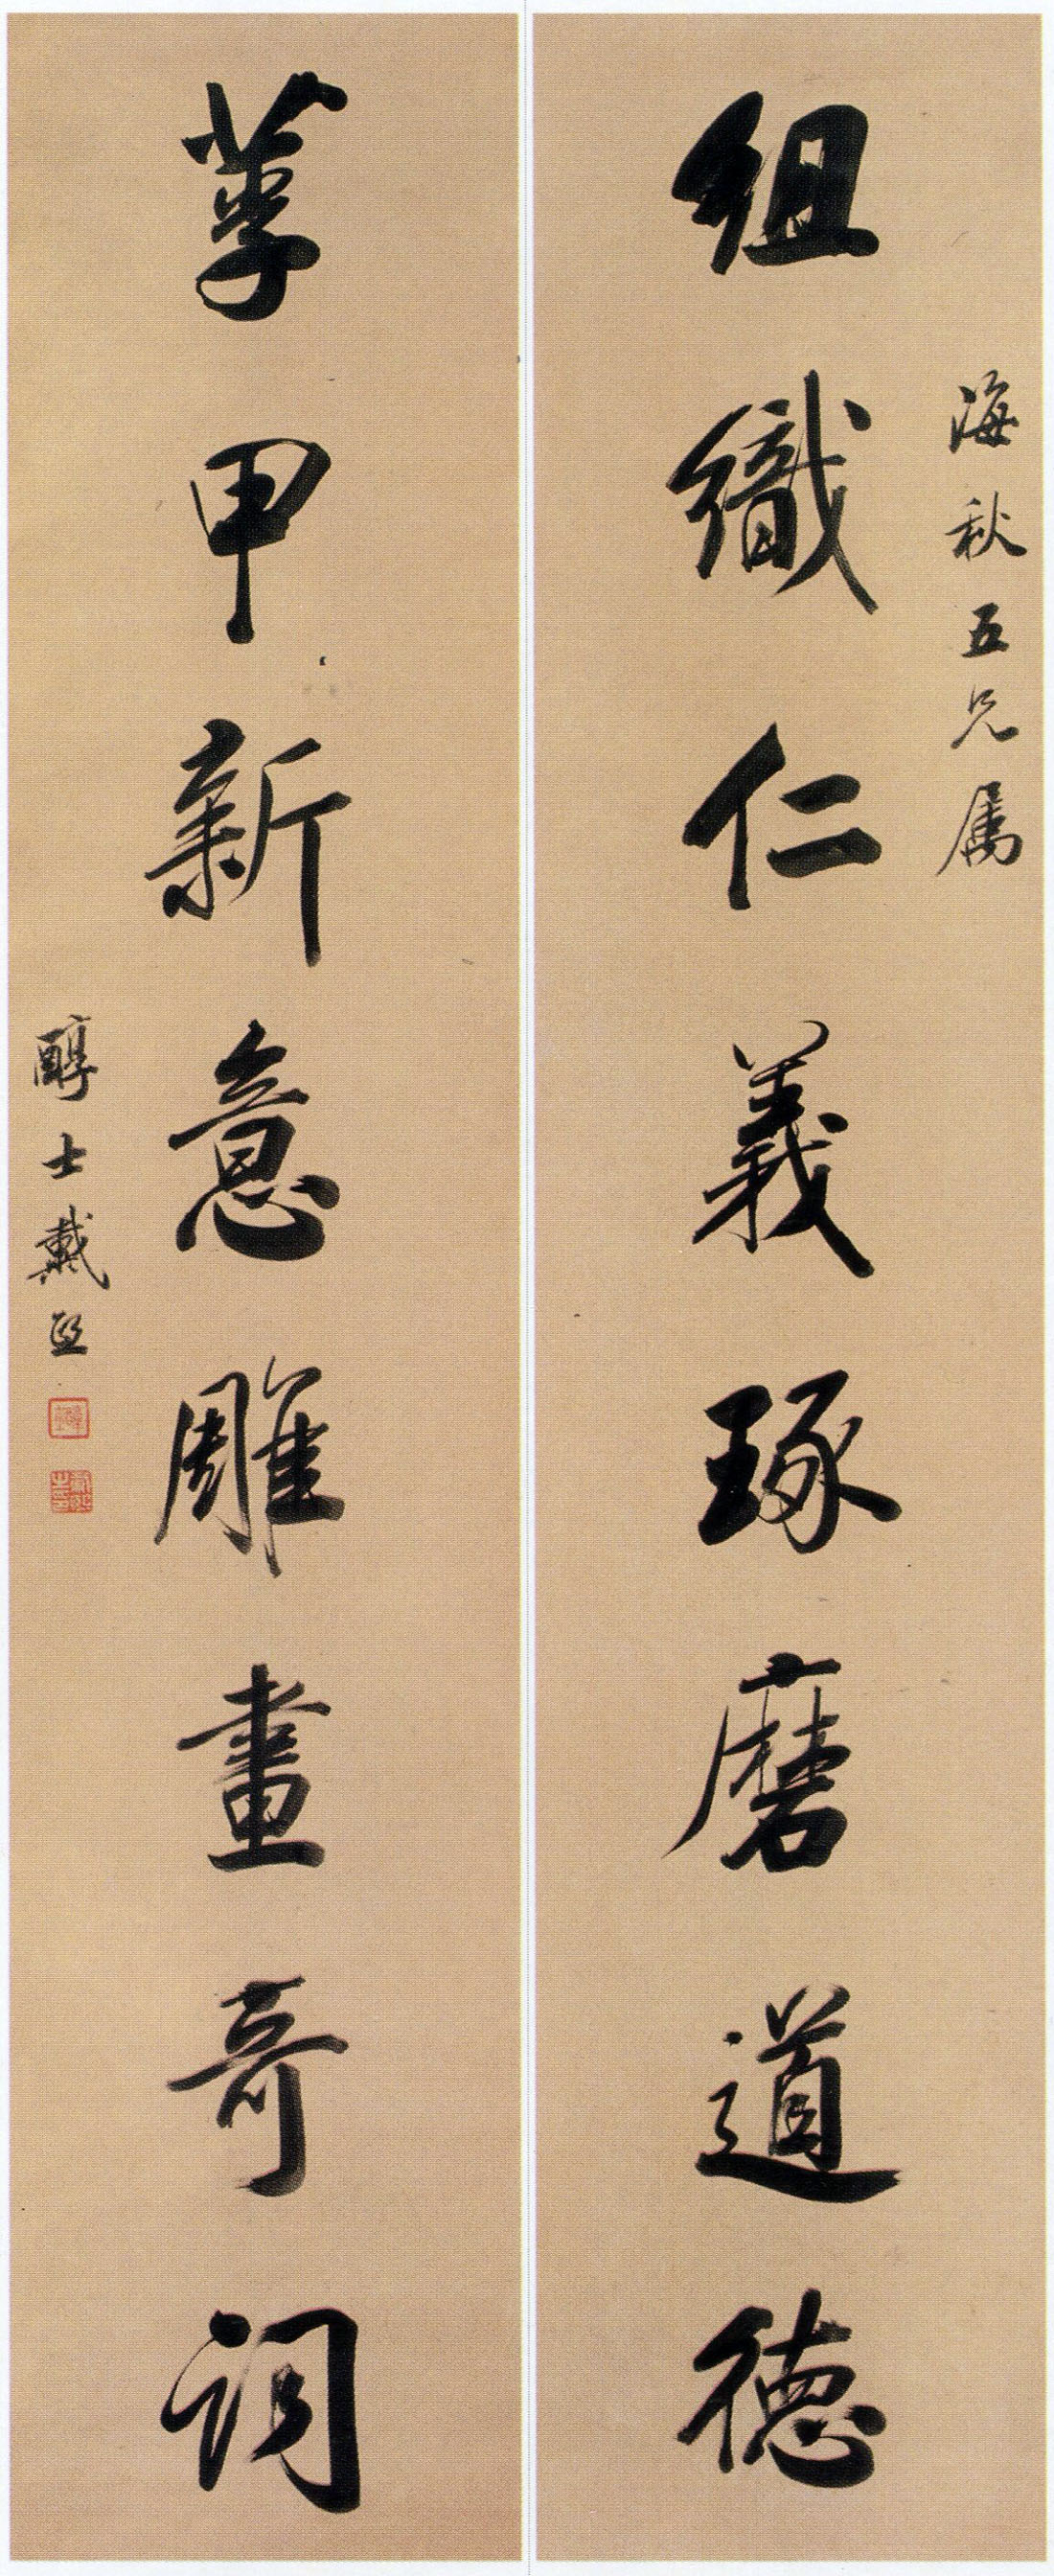 海秋五兄属
組織仁義琢磨道德
莩甲新意雕畫奇詞
醇士戴熙